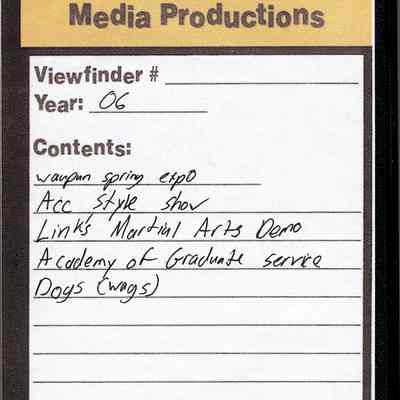 Media Productions
Viewfinder #
Year: 06
Contents:
waupun spring expo
Acc style show
Link's Martial Arts Demo
Academy of Graduate service
Dogs (wags)